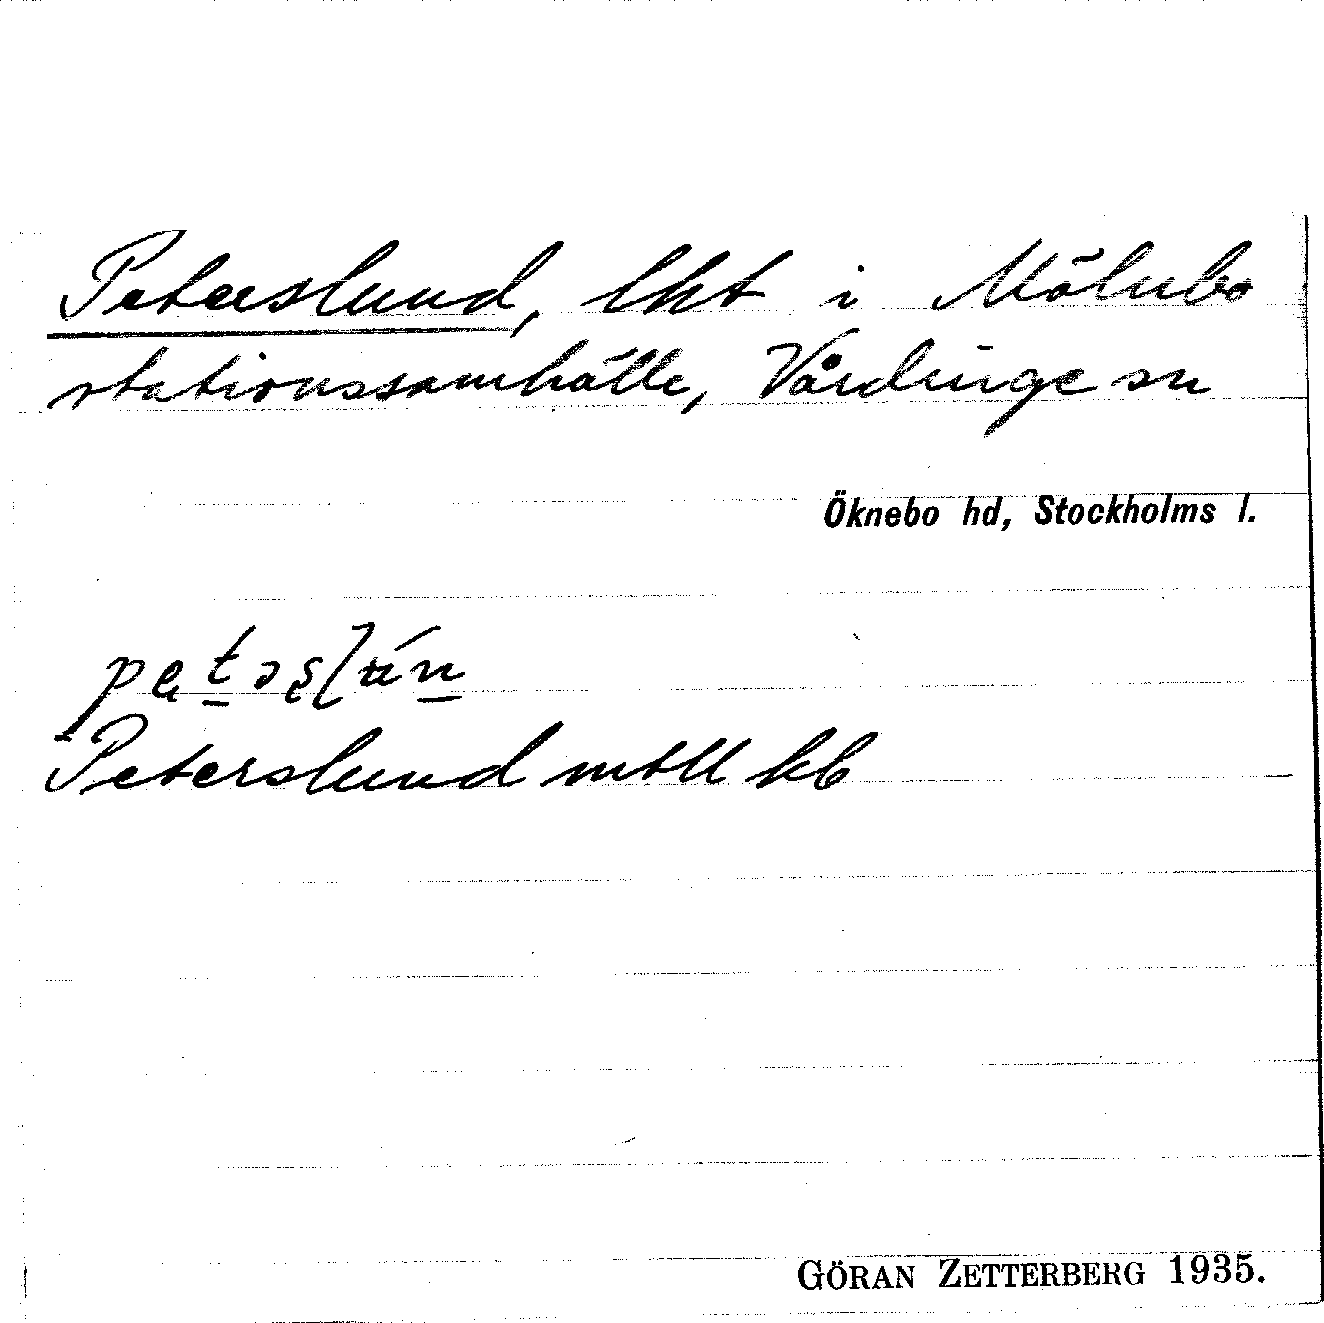 Peterslund, lht i Mölnbo
stationssamhälle, Vårdinge sn
Öknebo hd, Stockholms l.
Peterslund mtll kb
GÖRAN ZETTERBERG 1935.